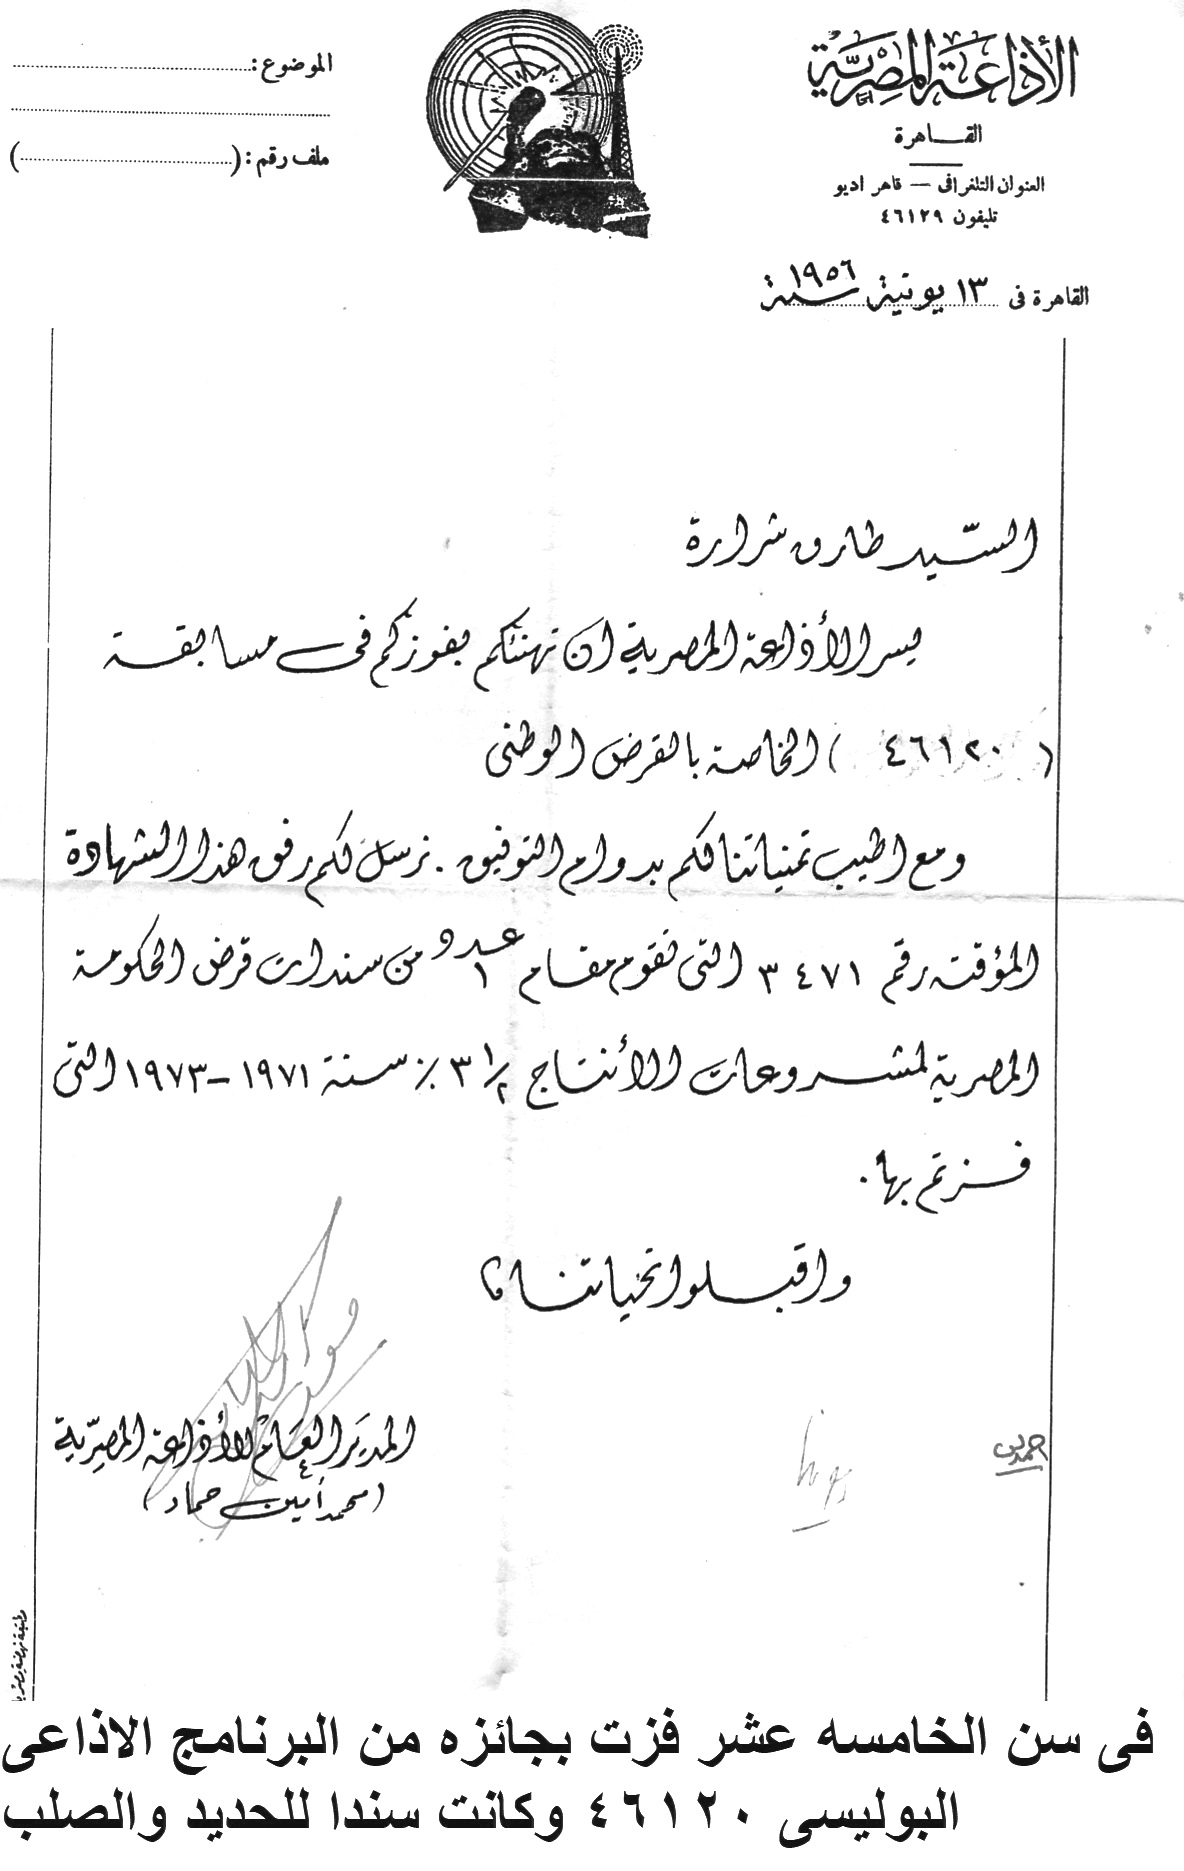 الأذاعة المصرية
القاهرة
العنوان التلغرافى — قاهر اديو
تليفون ٤٦١٢٩
الموضوع:
ملف رقم: ( )
القاهرة فى ١٣ يونية سنة ١٩٥٦
السيد طارق شرارة
يسر الأذاعة المصرية ان تهنئكم بفوزكم فى مسابقة
( ٤٦١٢٠ ) الخاصة بالقرض الوطنى
ومع اطيب تمنياتنا لكم بدوام التوفيق . نرسل لكم رفق هذا الشهادة
المؤقته رقم ٣٤٧١ التى تقوم مقام عدد ١ من سندات قرض الحكومة
المصرية لمشروعات الأنتاج ٣ ١/٢ ٪ سنة ١٩٧١ – ١٩٧٣ التى
فزتم بها .
واقبلوا تحياتنا
المدير العام للأذاعة المصرية
( محمد أمين حماد )
فى سن الخامسه عشر فزت بجائزه من البرنامج الاذاعى
البوليسى ٤٦١٢٠ وكانت سندا للحديد والصلب